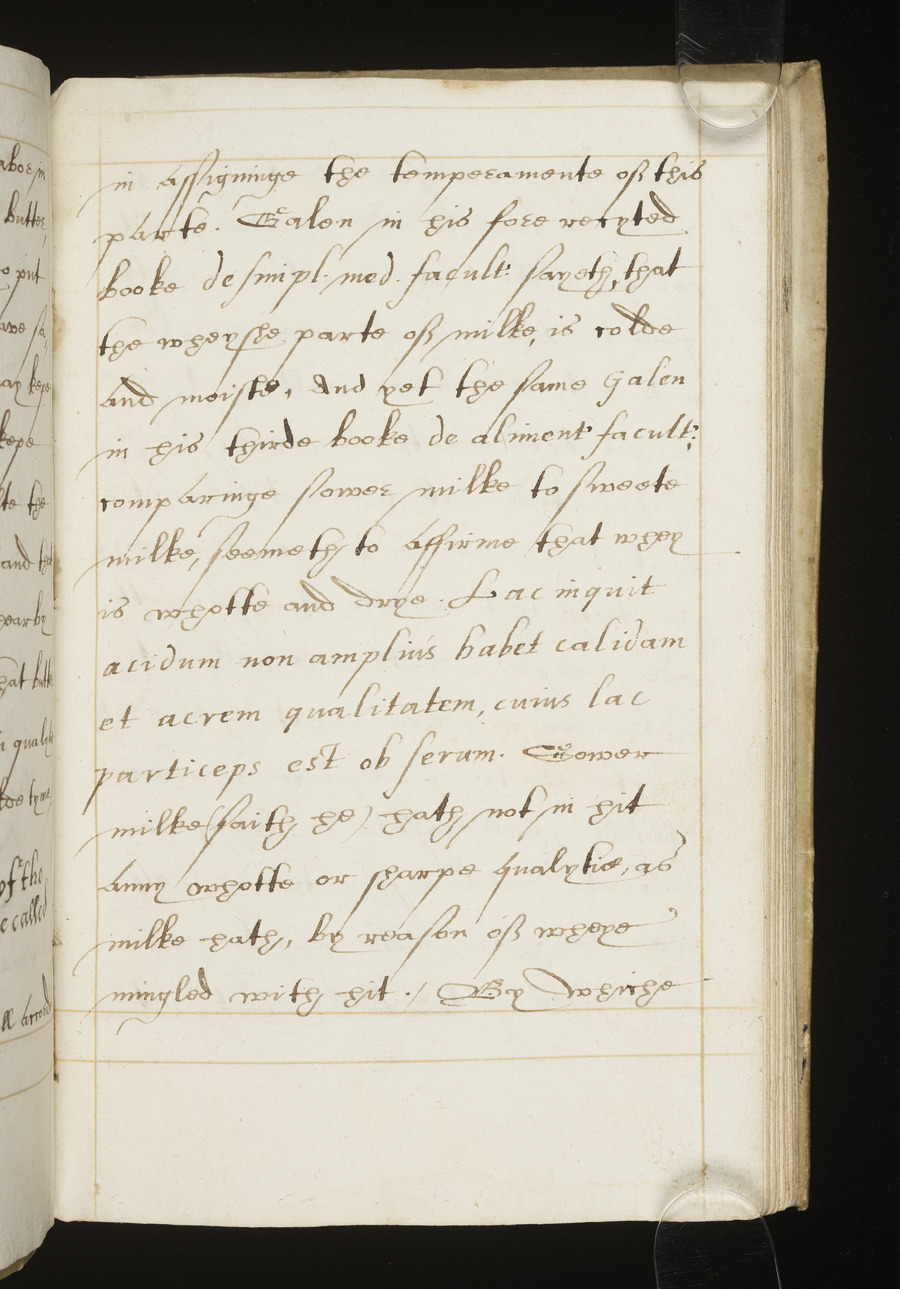 in assigninge the temperamente off this
parte. Galen in his fore recyted
booke de simpl. med. facult: sayeth, that
the wheyshe parte off milke, is colde
and moiste, and yet the same Galen
in his thirde booke de aliment facult:
comparinge sower milke to sweete
milke, seemeth to affirme that whey
is whotte and drye. Lac inquit
acidum non ampliús habet calidam
et acrem qualitatem, cuius lac
particeps est ob serum. Sower
milke (saith he) hath not in hit
anny whotte or sharpe qualytie, as
milke hath, by reason off wheye
mingled with hit ./ By whiche
butter
put
kepe
kepe
the
and
hat
of the
called